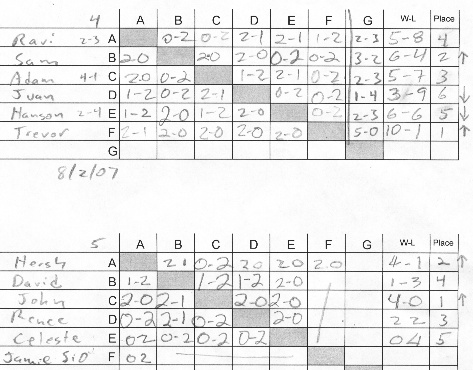 4 A B C D E F G W-L Place
Ravi 2-3 A 0-2 0-2 2-1 2-1 1-2 2-3 5-8 4
Sam B 2-0 2-0 2-0 0-2 0-2 3-2 6-4 2 ↑
Adam 4-1 C 2-0 0-2 1-2 2-1 0-2 2-3 5-7 3
Juan D 1-2 0-2 2-1 0-2 0-2 1-4 3-9 6 ↓
Hanson 2-4 E 1-2 2-0 1-2 2-0 0-2 2-3 6-6 5 ↓
Trevor F 2-1 2-0 2-0 2-0 2-0 5-0 10-1 1
G
8/2/07
5 A B C D E F G W-L Place
Hersh A 2 1 0-2 2 0 2 0 2 0 4-1 2 ↑
David B 1-2 1-2 1-2 2-0 1-3 4
John C 2-0 2-1 2-0 2-0 4-0 1 ↑
Renee D 0-2 2-1 0-2 2-0 2 2 3
Celeste E 0 2 0-2 0-2 0-2 0 4 5
Jamie F 0 2